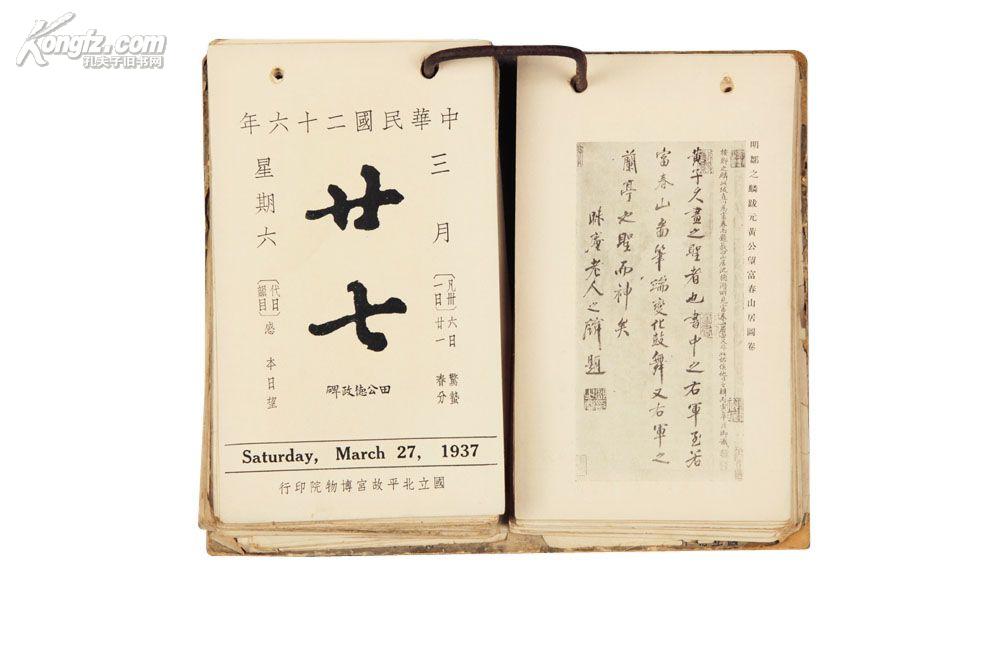 Kongfz.com
孔夫子旧书网
中華民國二十六年
三月
〔凡卅一日〕
六日驚蟄
廿一春分
廿七
田公德政碑
星期六
〔代日韻目〕感
本日望
Saturday, March 27, 1937
國立北平故宮博物院印行
明鄒之麟跋元黃公望富春山居圖卷
黃子久畫之聖者也書中之右軍至若
富春山圖筆端變化鼓舞又右軍之
蘭亭也聖而神矣
昧庵老人之麟題